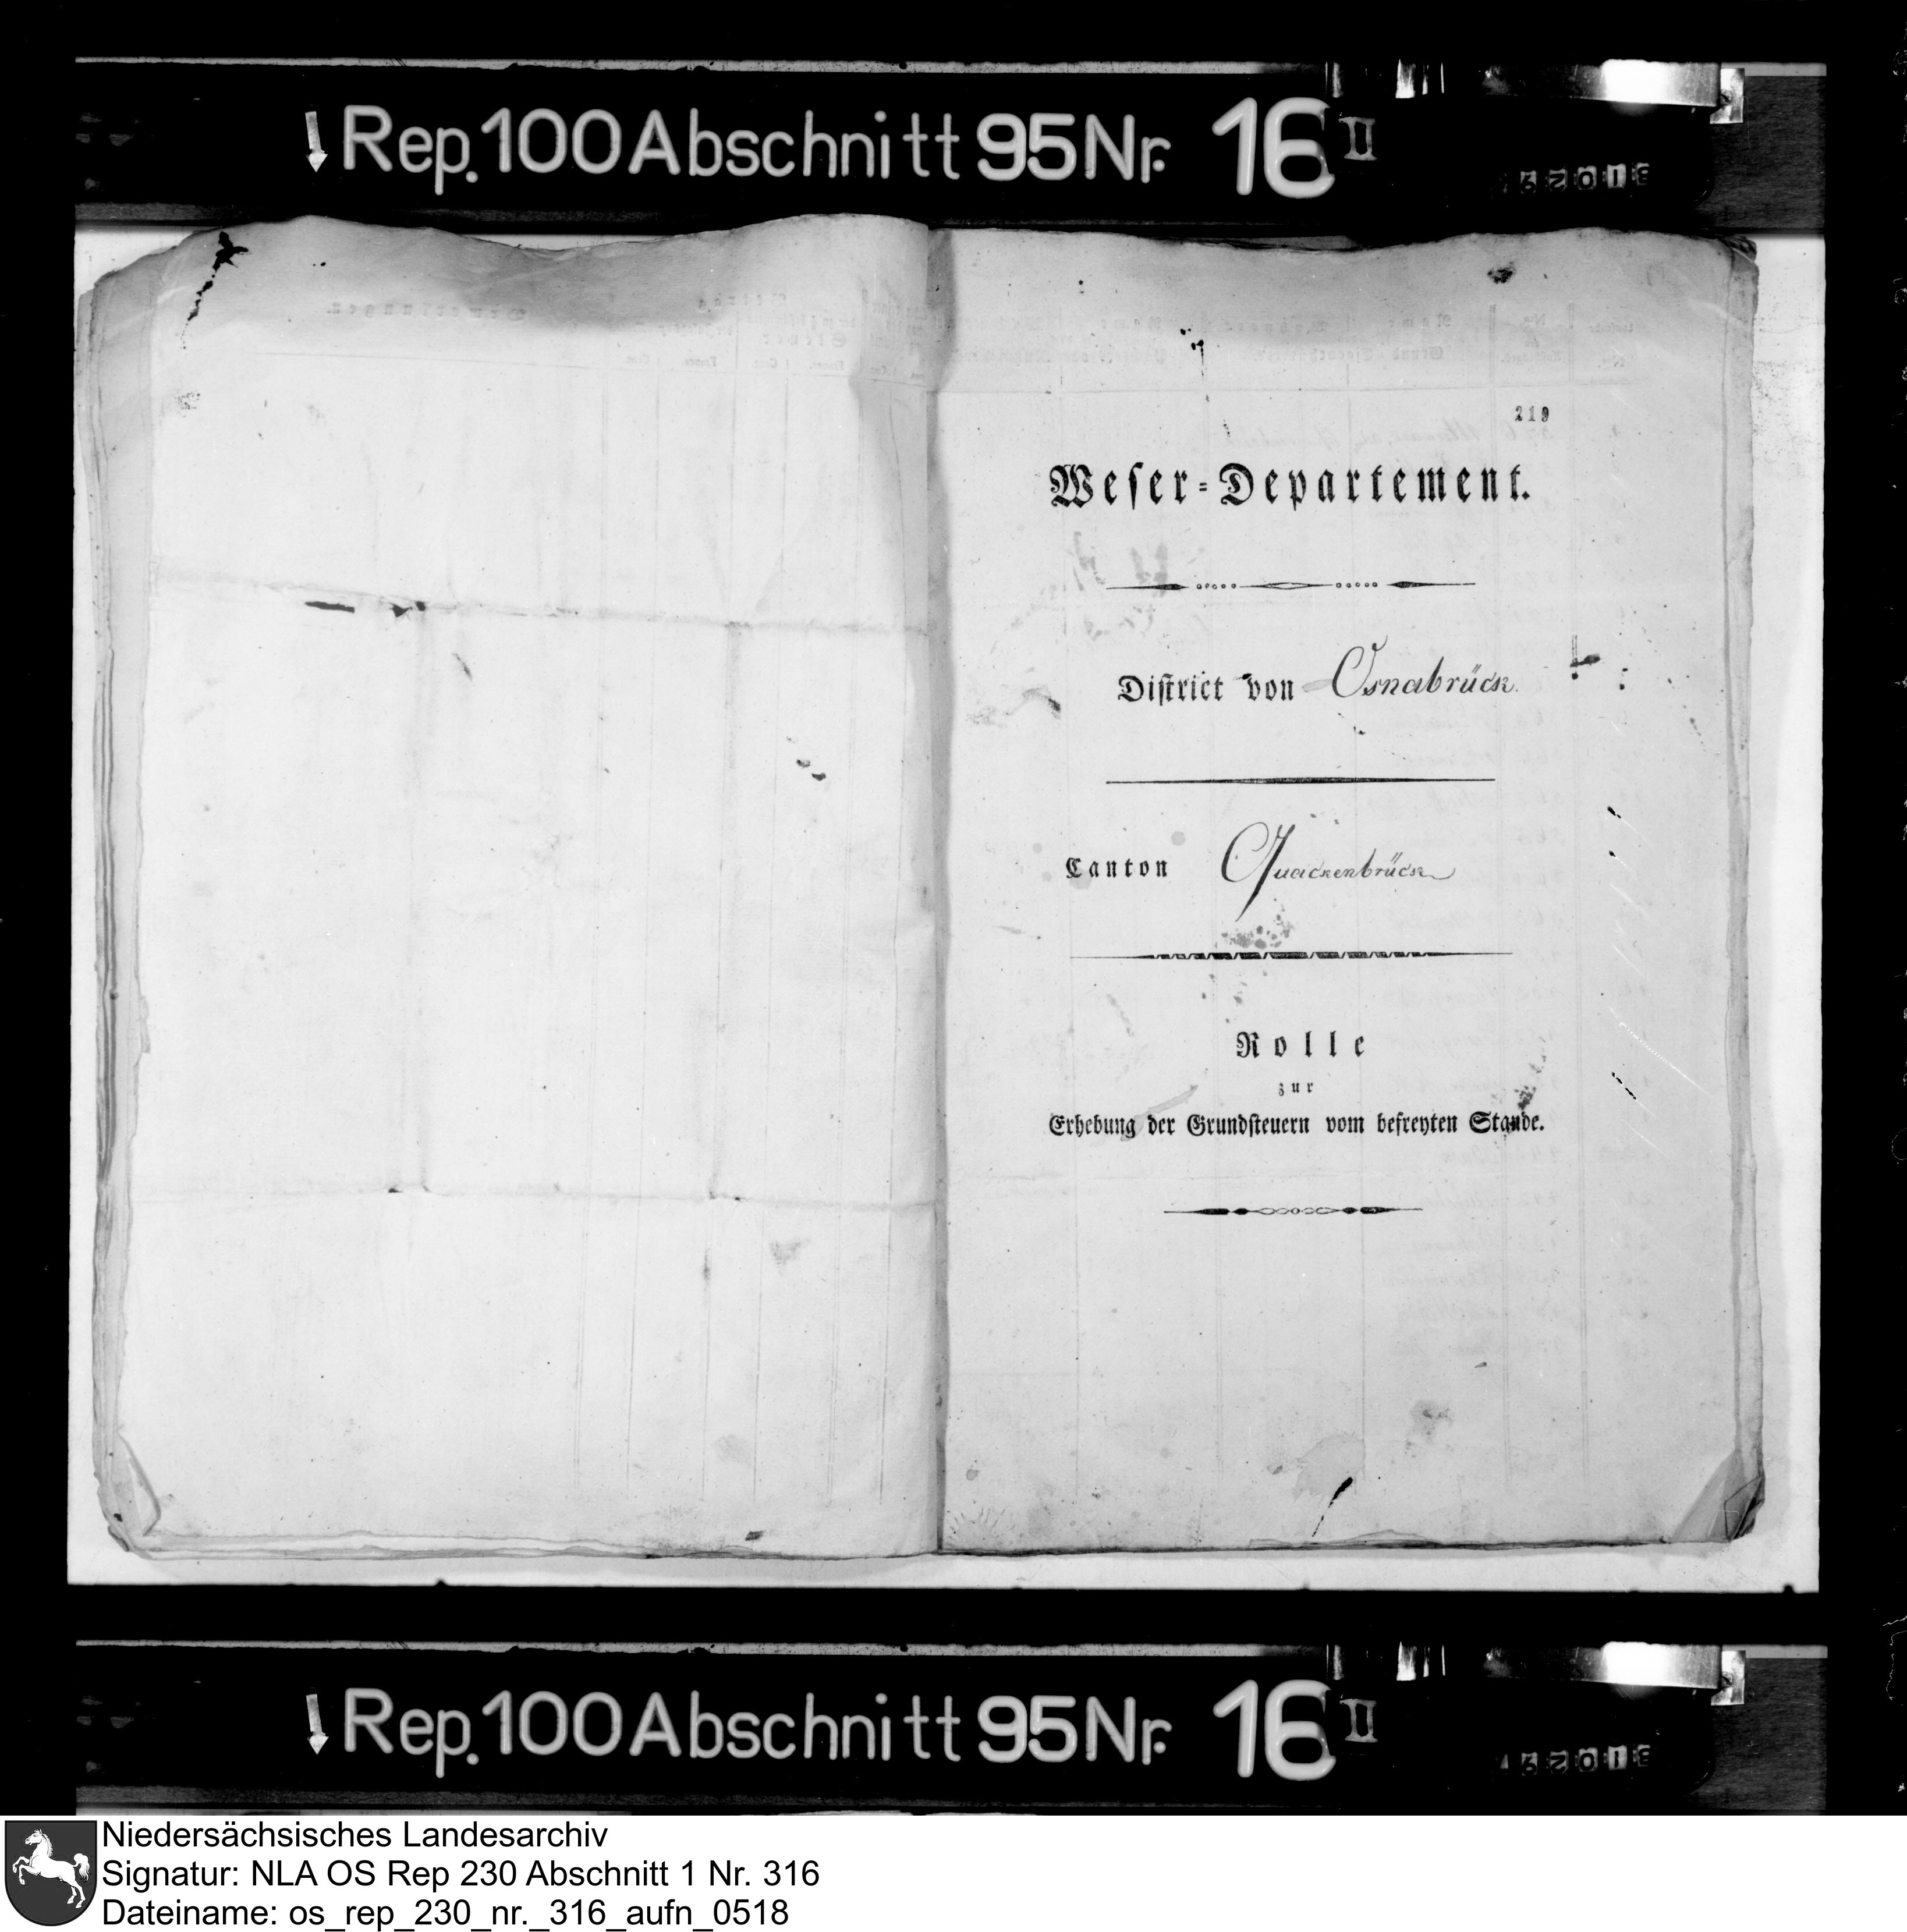 Rep. 100 Abschnitt 95 Nr. 16 II
219
Weser-Departement.
District von Osnabrück.
Canton Quackenbrück
Rolle
zur
Erhebung der Grundsteuern vom befreyten Stande.
Rep. 100 Abschnitt 95 Nr. 16 II
Niedersächsisches Landesarchiv
Signatur: NLA OS Rep 230 Abschnitt 1 Nr. 316
Dateiname: os_rep_230_nr._316_aufn_0518